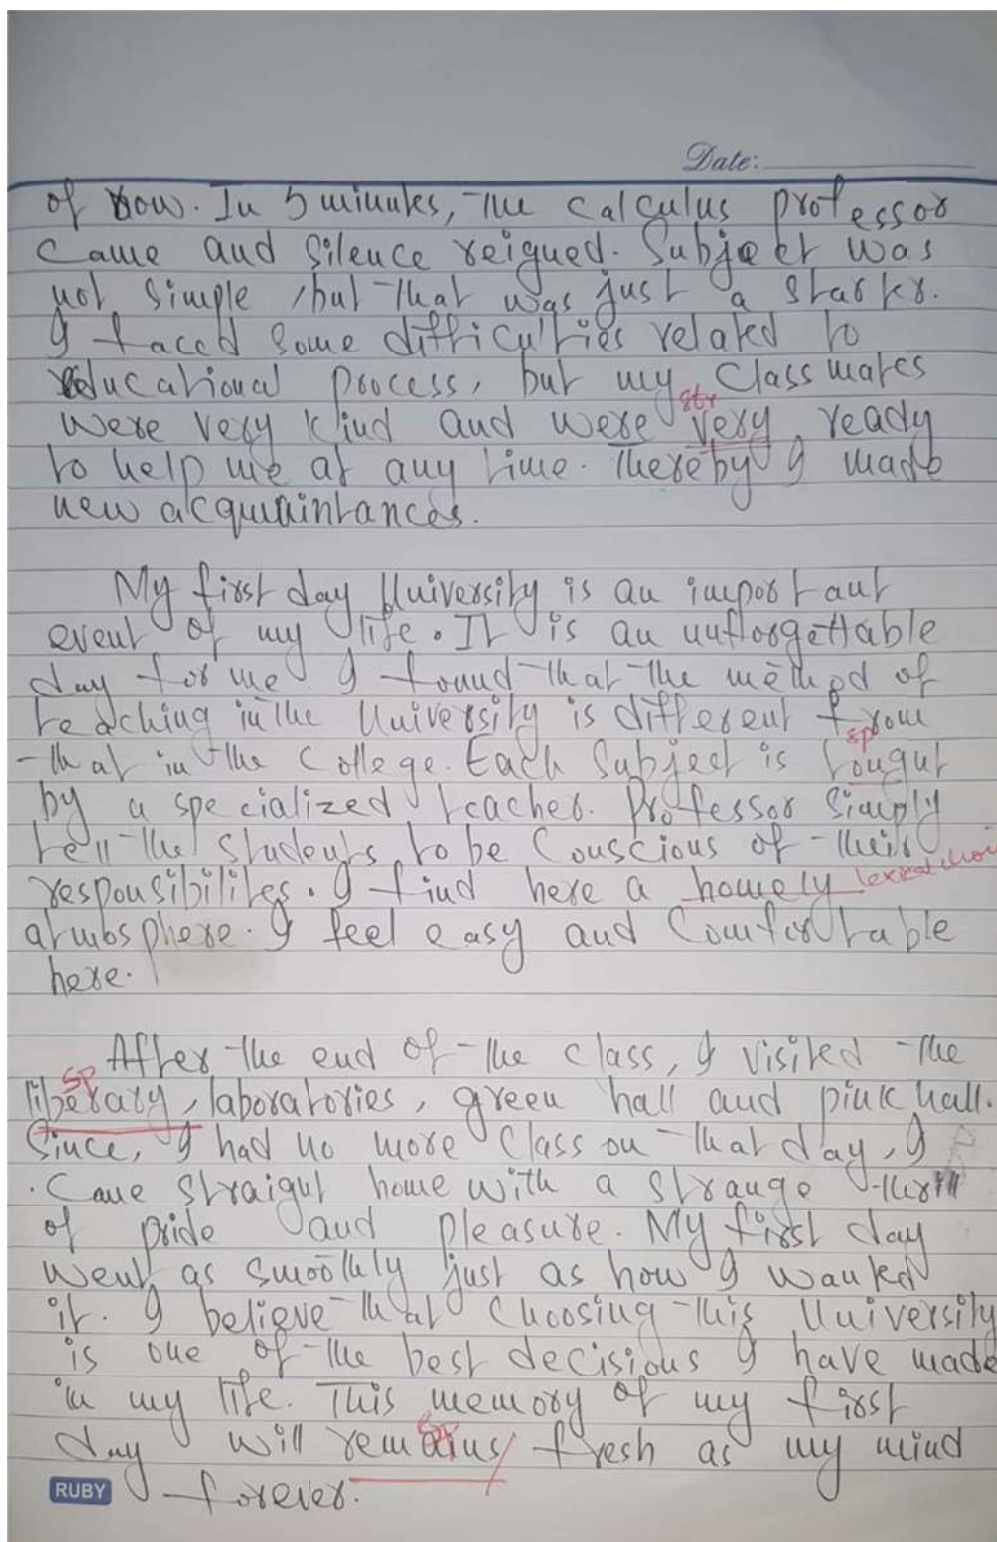 Date:
of row. In 5 minutes, the calculus professor
came and silence reigned. Subject was
not simple, but that was just a starts.
I faced some difficulties related to
educational process, but my classmates
str
were very kind and were very ready
to help me at any time. Thereby I made
new acquaintances.
My first day University is an important
event of my life. It is an unforgettable
day for me. I found that the method of
teaching in the University is different from
sp
that in the college. Each subject is tought
by a specialized teacher. Professor simply
tell the students to be conscious of their
responsibilites. I find here a homely lexical choi
atmosphere. I feel easy and comfortable
here.
After the end of the class, I visited the
sp
liberary, laboratories, green hall and pink hall.
Since, I had no more class on that day, I
came straight home with a strange thrill
of pride and pleasure. My first day
went as smoothly just as how I wanted
it. I believe that choosing this University
is one of the best decisions I have made
in my life. This memory of my first
sp
day will remains fresh as my mind
forever.
RUBY